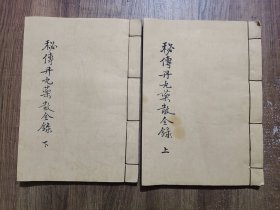 秘傳丹丸藥散全錄
上
秘傳丹丸藥散全錄
下